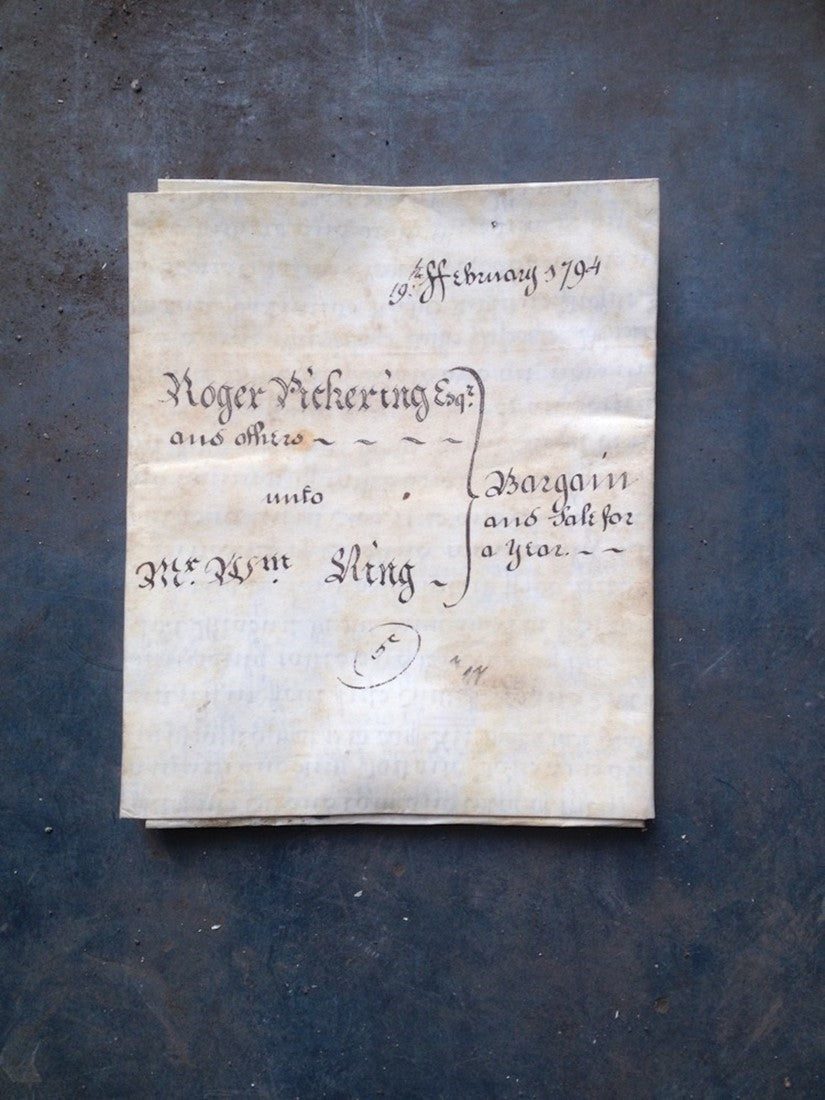 19.th ffebruary 1794
Roger Pickering Esqr.
and others
unto
Mr. Wm. Ring
Bargain
and Sale for
a Year.